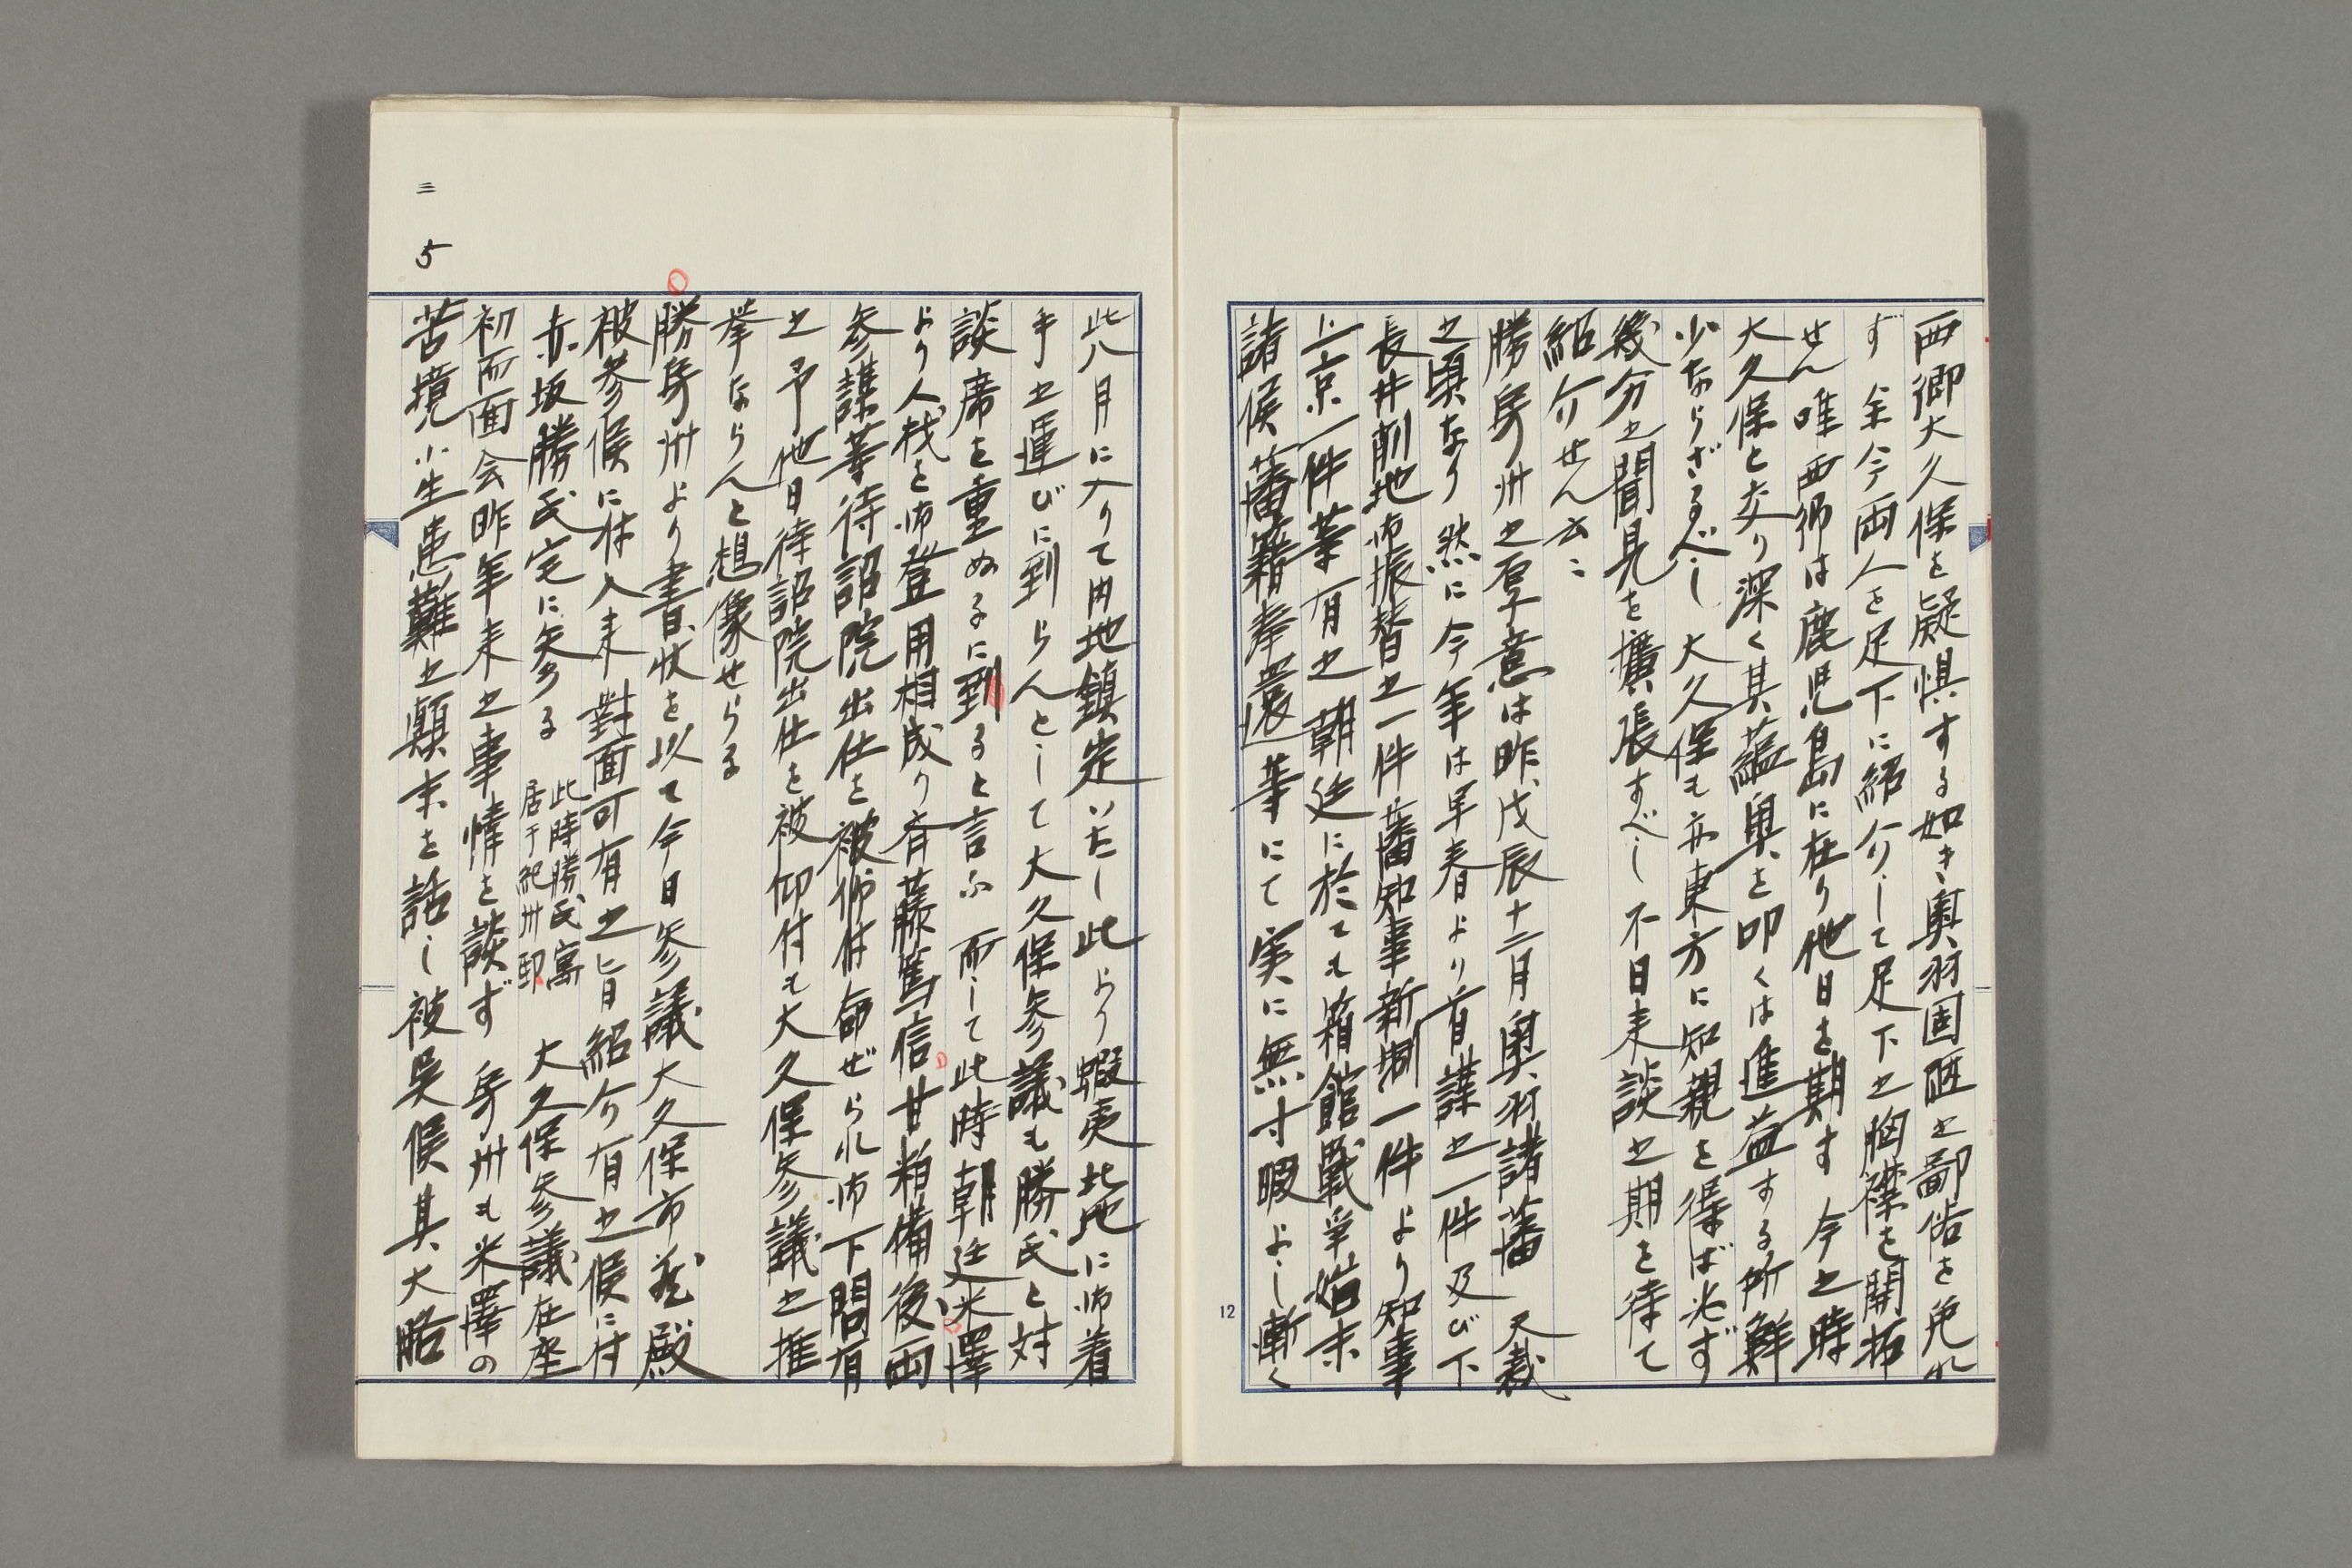 西郷大久保を疑惧する如き奥羽固陋之鄙俗を免れ
ず 余今両人を足下に紹介して足下之胸襟を開拓
せん 唯西郷は鹿児島に在り他日を期す 今之時
大久保と交り深く其蘊奥を叩くは進益する所鮮
少ならざるべし 大久保も亦東方に知親を得ば必ず
幾分之聞見を擴張すべし 不日来談之期を待て
紹介せん云ニ
勝房州之厚意は昨戊辰十二月奥羽諸藩 天裁
之頃なり 然に今年は早春より首謀之一件及び下
長井削地御振替之一件藩知事新制一件より知事
上京一件等有之 朝廷に於ても箱館戦争始末
諸侯藩籍奉還等にて実に無寸暇よし 漸く
12
此八月に入りて内地鎮定いたし此より蝦夷北地に御着
手之運びに到らんとして大久保参議も勝氏と対
談席を重ぬるに到ると言ふ 而して此時朝廷米澤
より人材を御登用相成り斉藤篤信甘粕備後両
参謀等待詔院出仕を被仰付命ぜられ御下問有
之 予他日待詔院出仕を被仰付も大久保参議之推
挙ならんと想像せらる
勝房州より書状を以て今日参議大久保市蔵殿
被参候に付入来對面可有之旨紹介有之候に付
赤坂勝氏宅に参る 此時勝氏寓
居于紀州邸 大久保参議在座
初而面会昨年来之事情を談ず 房州も米澤の
苦境小生患難之顛末を話し被呉候其大略
三
5